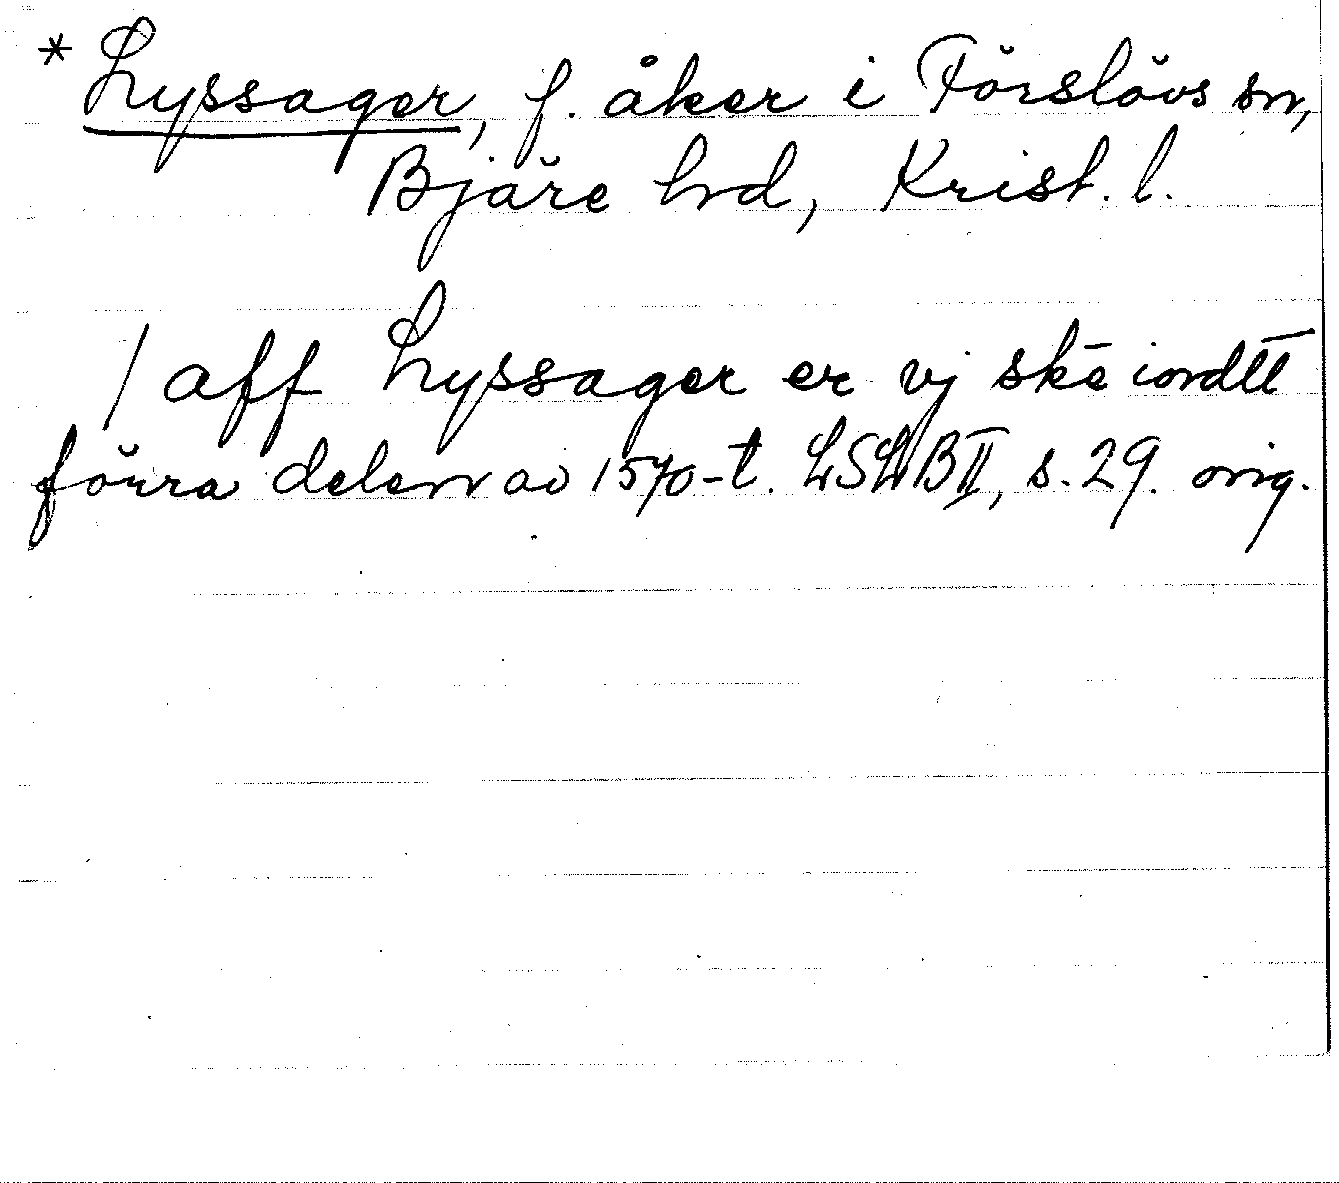 * Lyssager, f. åker i Förslövs sn,
Bjäre hrd, Krist. l.
/ aff Lyssager er vj skē iordtt
förra delen av 1570-t. LSLB II, s. 29. orig.